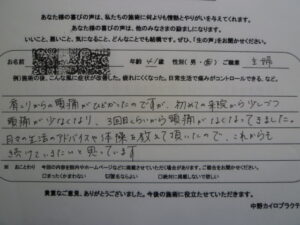 あなた様の喜びの声は、私たちの施術に何よりも情熱とやりがいを与えてくれます。
あなた様の喜びの声は、他のみなさまの励みにもなります。
いいこと、悪いこと、気になること、どんなことでも結構です。ぜひ、「生の声」をお聞かせください。
お名前 年齢 性別(男・女) ご職業 主婦
例)施術の後、こんな風に症状が改善した、疲れにくくなった、日常生活で痛みがコントロールできる、など。
肩こりからの頭痛がひどかったのですが、初めての施術から少しづつ
頭痛が少なくなり、3回目くらいから頭痛がなくなってきました。
日々の生活のアドバイスや体操を教えて頂いたので、これからも
続けていきたいと思っています
※ おことわり 今回の内容を院内やホームページなどに掲載させていただく場合があります。ご都合をお聞かせください。
□まったくかまわない □匿名ならよい □絶対に掲載しないで欲しい
貴重なご意見、ありがとうございました。今後の施術に役立たせていただきます。
中野カイロプラクテ